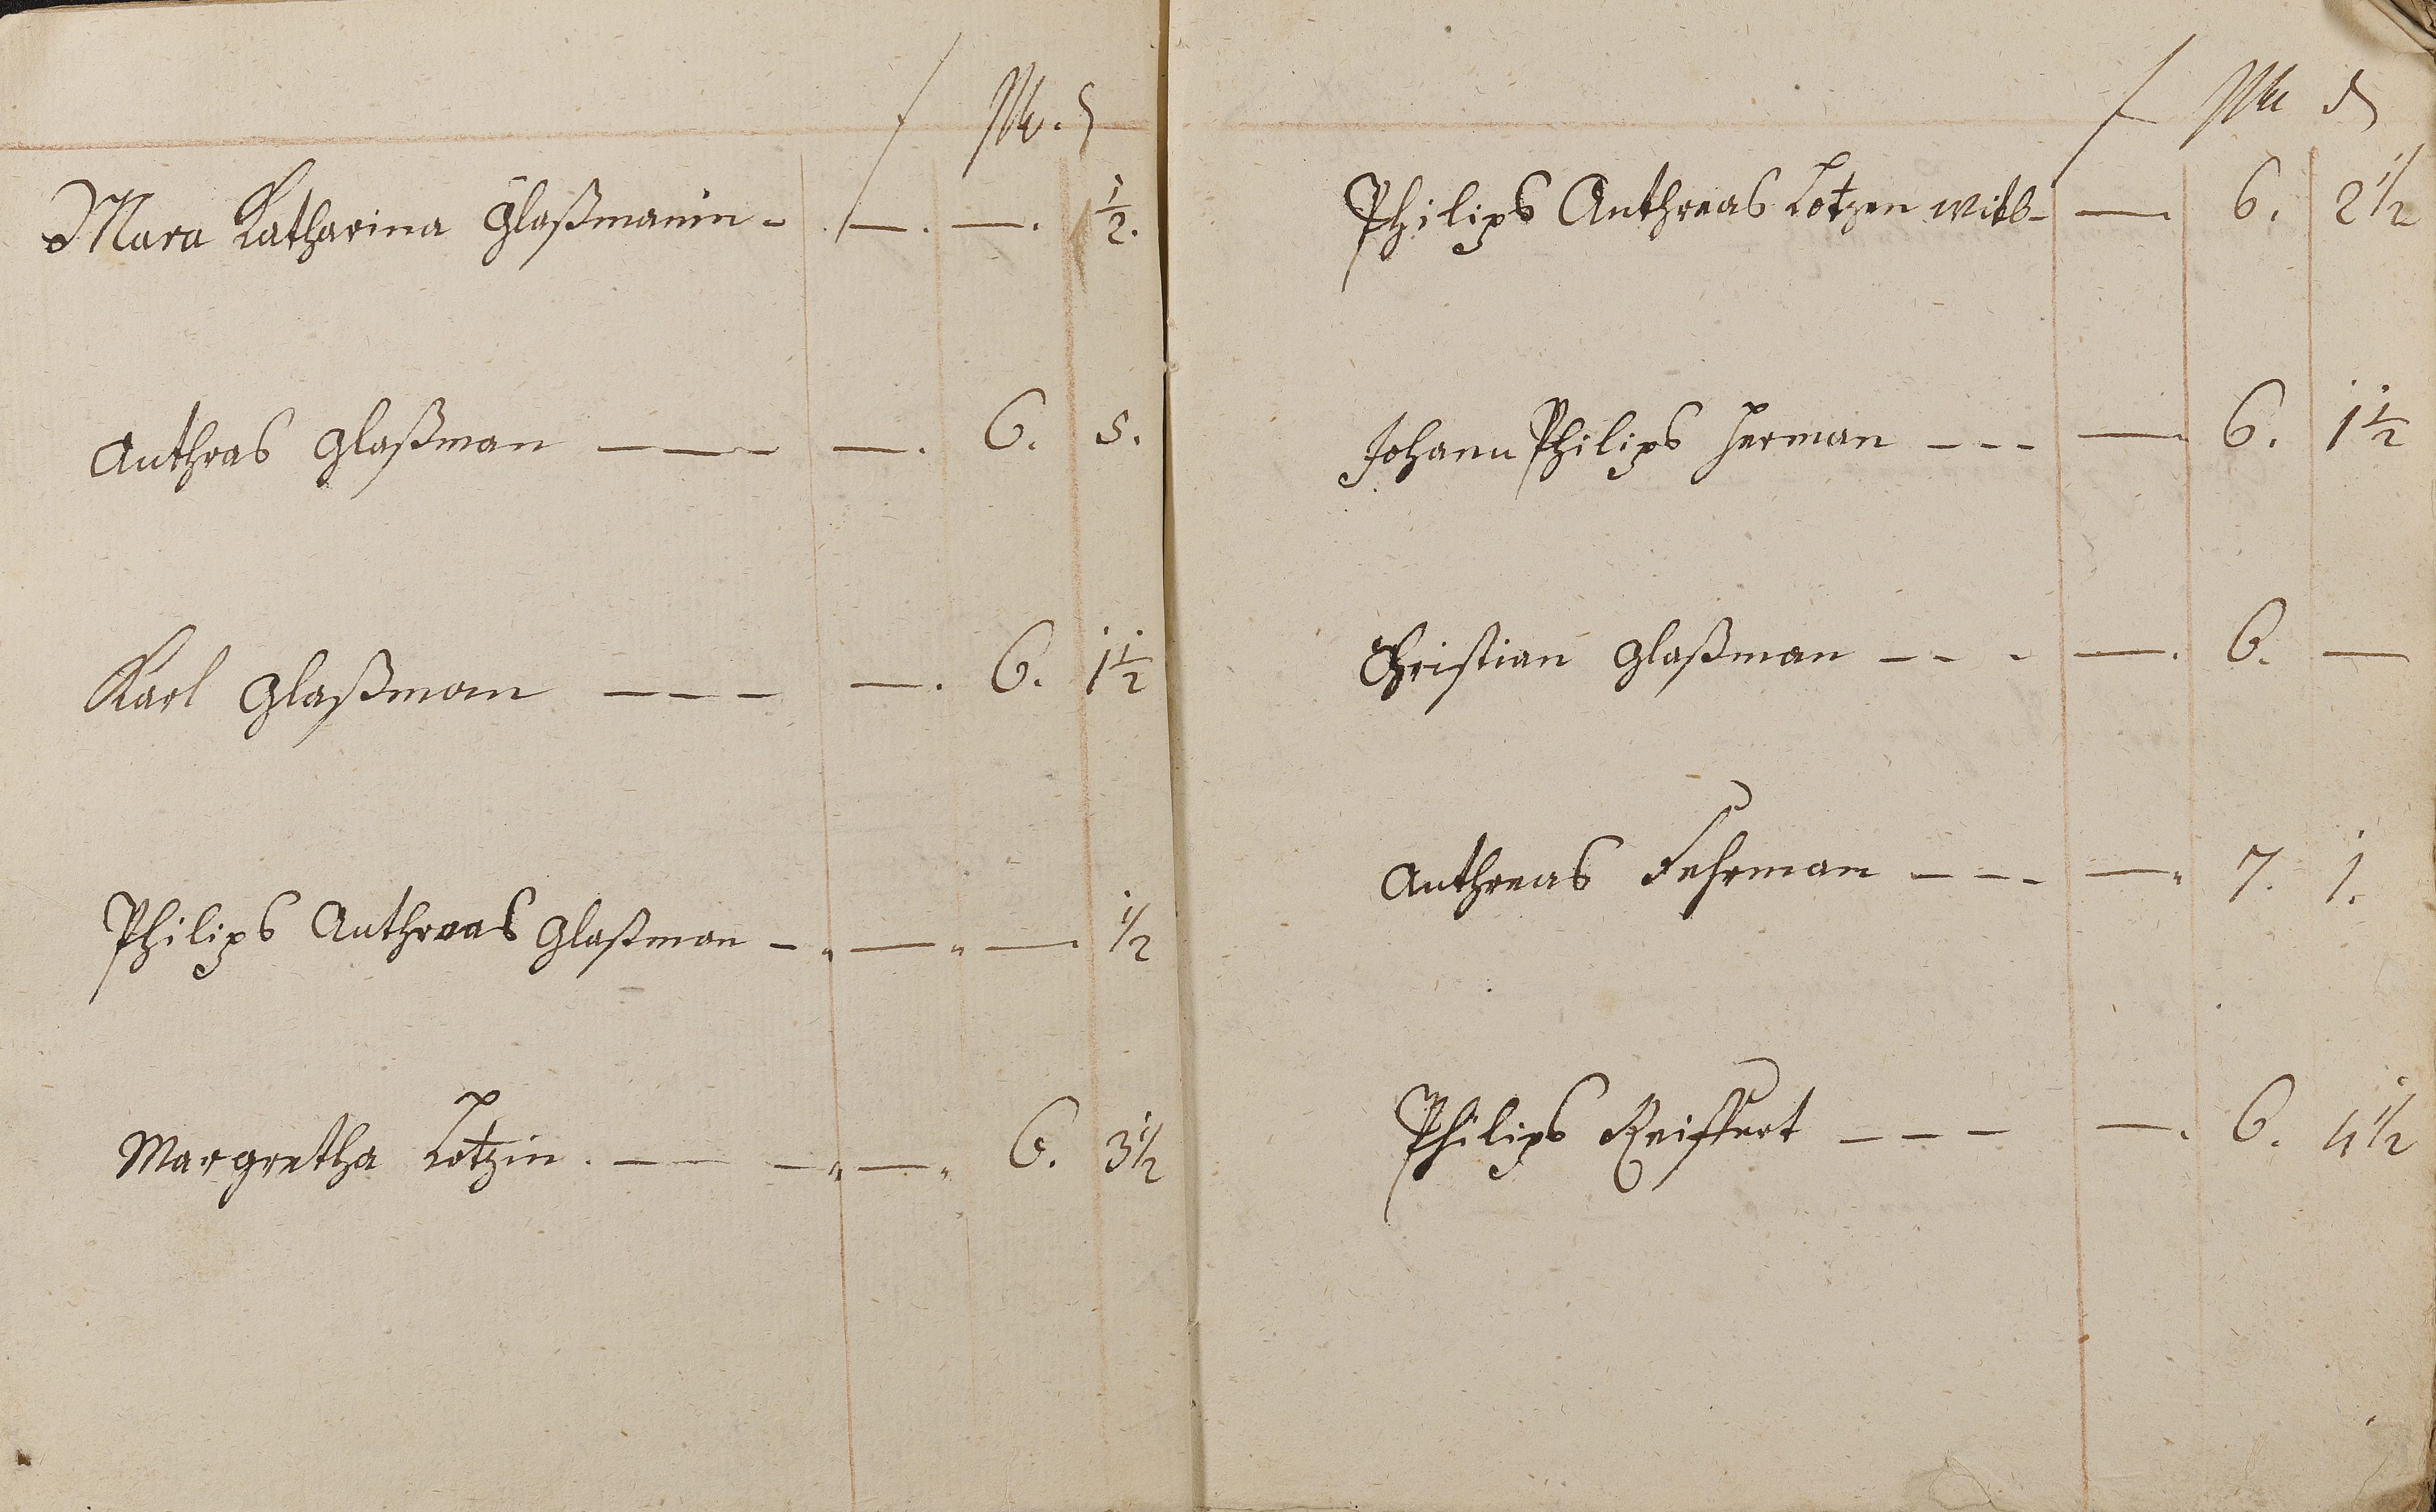 f M. δ
Mara Katharina Glaßmanin - —. —. 1½.
Anthras Glaßman — — — —. 6. 5.
Karl Glaßman — — — —. 6. 1½
Philips Anthreas Glaßman — — — ½
Margretha Lotzin. — — — — 6. 3½
f δ
Philips Anthreas Lotzen Witb- — 6. 2½
Johann Philips Herman - - - — 6. 1½
Christian Glaßman - - - —. 6. —
Anthreas Fehrman - - - — 7. 1.
Philips Reiffert — — — —. 6. 4½